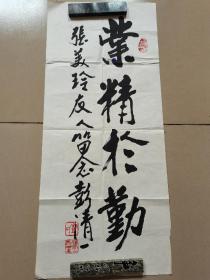 業精於勤
張美玲友人留念彭清一